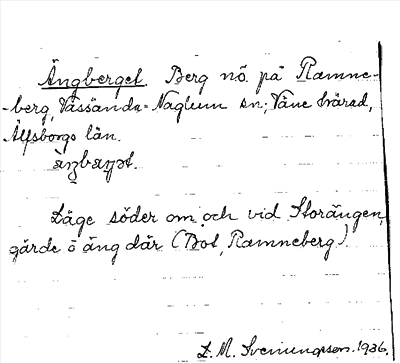 Ängberget. Berg nö. på Ramne-
-berg, Vassända-Naglum sn; Väne härad,
Älfsborgs län.
Läge söder om och vid Storängen,
gärde o äng där (Bot, Ramneberg)
L. M. Svenungsson. 1936.